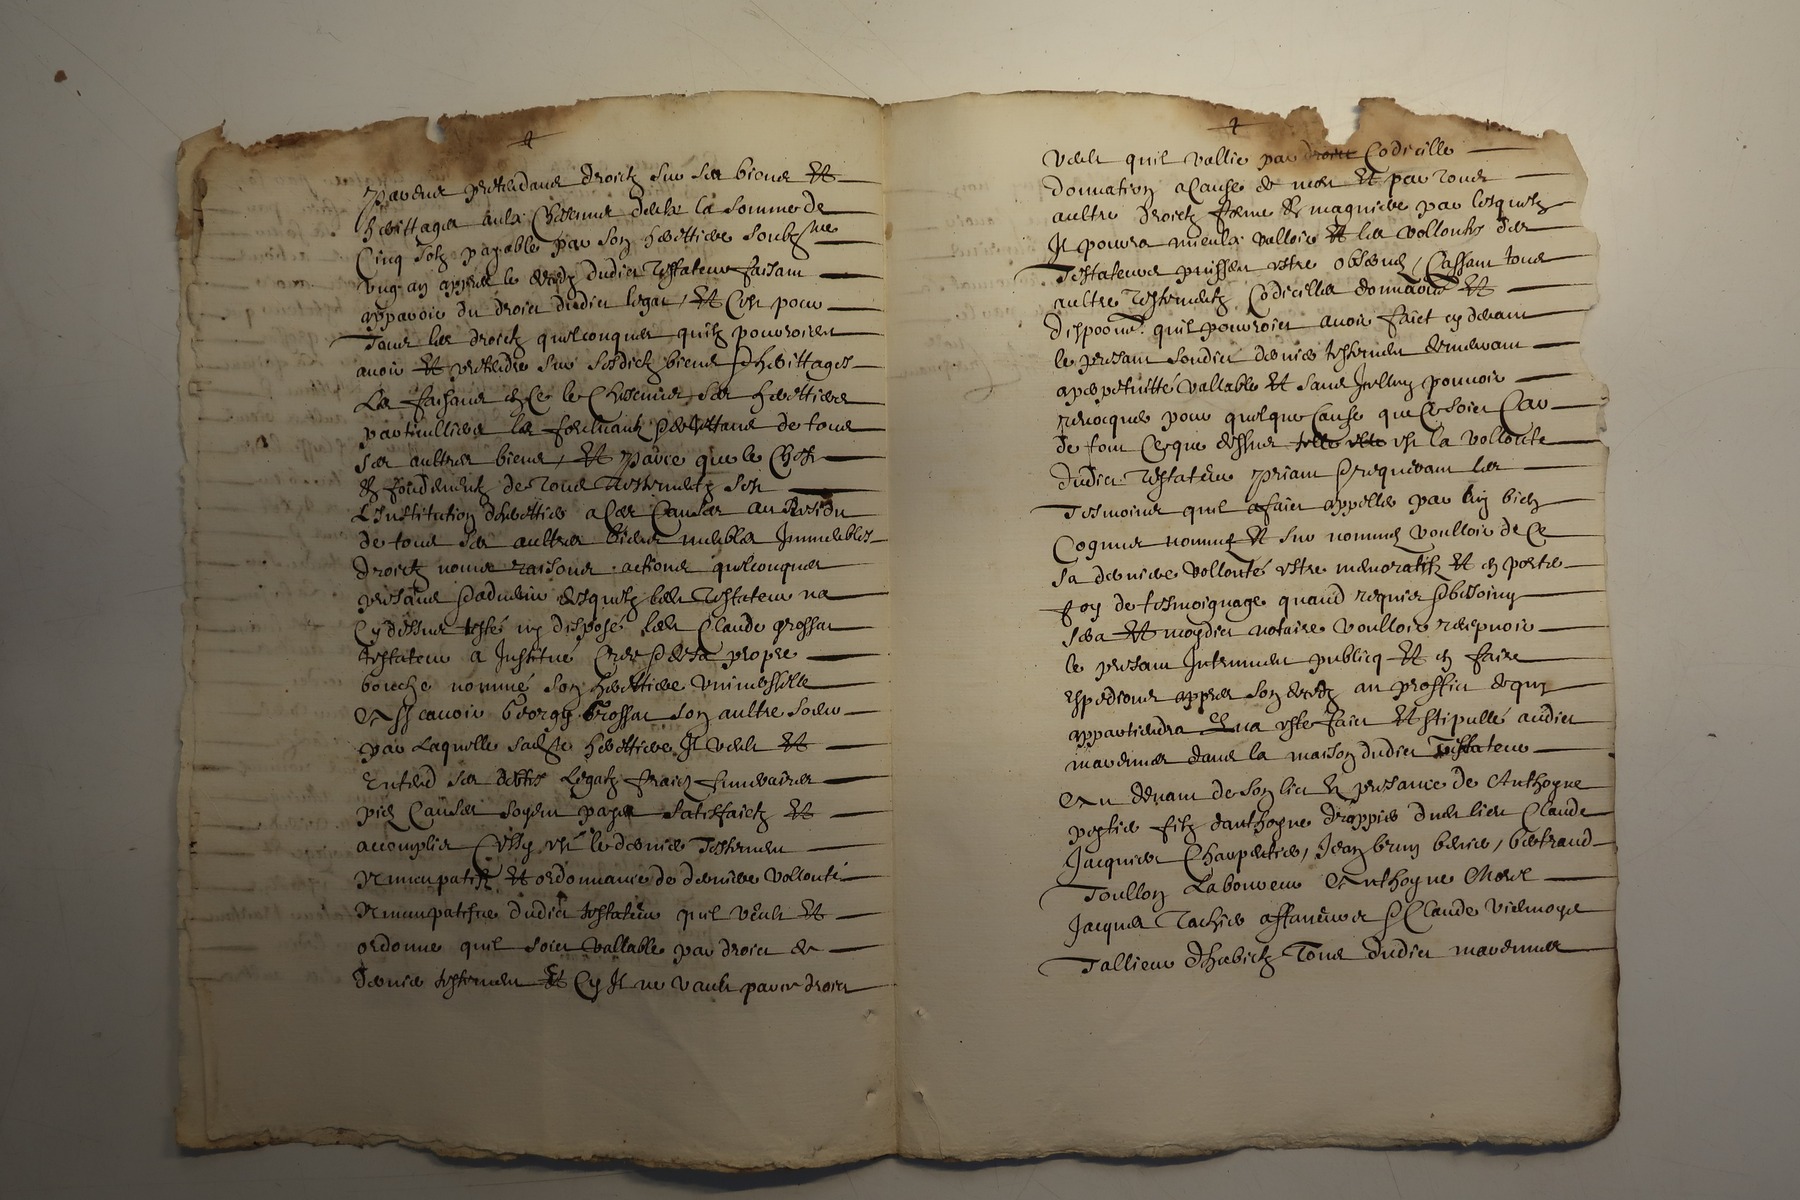 parens pretendans droictz sur ses biens Et
herittages aulx Chescuns delx la somme de
Cinq solz payable par son herittiere soubz ne
ung an appres le deces dudict testateur faisant
apparoir du droict dudict legat, Et C'est pour
Tous les droictz quelconques quilz pourroient
avoir Et pretendre sur sesdictz biens & herittages
Les faisans en Ce le Chescuns, ses herittiers
particulliers les forcluant & deboutant de tous
ses aultres biens, Et Parce que le Chefz
& fondement de Tous Testementz Est
L'Institution d'herittier a Ces Causes au Residu
de tous ses aultres biens meubles Immeubles
droictz noms raisons actions quelconques
presans & advenir desquelz led testateur na
Cy dessus testé ny disposé led Claude grossat
testateur a Institué Cree & de sa propre
bouche nommé son herittiere universelle
Assavoir George Grossat son aultre soeur
par Laquelle sadicte herittiere Il veult Et
Entend ses debtes Legatz fraictz funeraires
pies Causes soyent payes satisfaictz Et
accomplies Cessy est le dernier Testement
Nuncupatif Et ordonnance de derniere vollonté
Nuncupative dudict testateur quil veult Et
ordonne quil soict vallable par droict de
dernier testement Et Cy Il ne vault par ce droict
veult quil vallie par droict Codicille
donnation a Cause de mort Et par Tous
aultre droictz forme & magniere par lesquelz
Il pourra mieulx valloir Et les vollontes des
Testateurs puissent estre observe, Cassant tous
aultre testementz Codicilles donnations Et
disposons quil pourroict avoir faict cy devant
le presant sondict dernier testement demeurant
a perpetuitté vallable Et sans Icelluy pouvoir
revocques pour quelque Cause que Ce soict Car
de tout Ce que dessus est la vollonte
dudict Testateur Priant & requerant les
Tesmoins quil a faict appelle par luy bien
Cognus nommes Et sur nommes voulloir de Ce
sa derniere vollonté estre memoratifz Et en porter
foy de tesmoignage quand requis & besoing
sera Et moydict notaire voulloir recepvoir
le presant Intrument publicq Et en faire
expedions appres son deces au proffict de qui
appartiendra Et na este faict Et stipullé audict
mardennes dans la maison dudict Testateur
Au devant de son lict En presance de Anthoyne
filz danthoyne drappier dud lieu Claude
Jacquier Charpentier, Jean brun bertrand
Toullon Laboureur Anthoyne Morel
Jacques Tachier affaneurs & Claude vidmoyet
Tallieur d'habictz Tous dudict mardennes